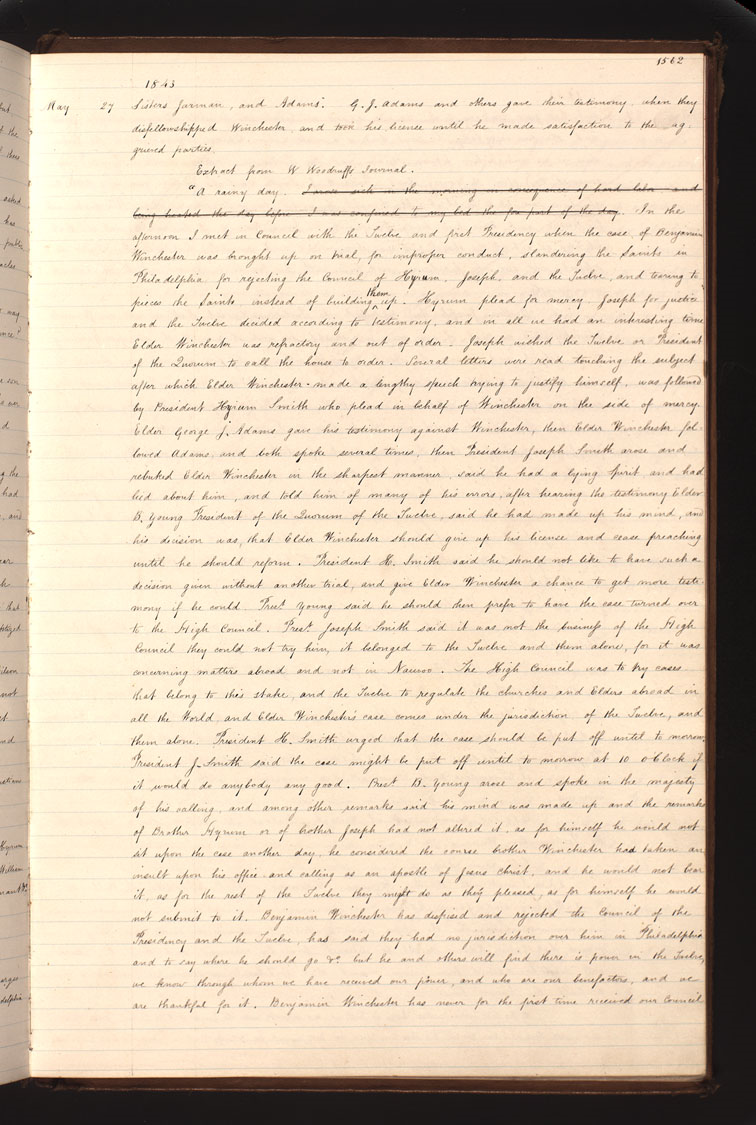 1562
1843
May 27 Sisters Jarman, and Adams. G. J. Adams and others gave their testimony, when they
disfellowshipped Winchester, and took his license until he made satisfaction to the ag-
grieved parties.
Extract from W Woodruffs Journal.
"A rainy day. I arose sick in the morning in consequence of hard labor and
being heated the day before I was confined to my bed the fore part of the day. In the
afternoon I met in Council with the Twelve and first Presidency when the case of Benjamin
Winchester was brought up on trial, for improper conduct, slandering the Saints in
Philadelphia for rejecting the Council of Hyrum, Joseph, and the Twelve, and tearing to
pieces the Saints instead of building them up. Hyrum plead for mercy Joseph for justice
and the Twelve decided according to testimony, and in all we had an interesting time
Elder Winchester was refractory and out of order. Joseph wished the Twelve or President
of the Quorum to call the house to order. Several letters were read touching the subject
after which Elder Winchester made a lengthy speech trying to justify himself, was followed
by President Hyrum Smith who plead in behalf of Winchester on the side of mercy
Elder George J. Adams gave his testimony against Winchester, then Elder Winchester fol-
lowed Adams, and both spoke several times, then President Joseph Smith arose and
rebuked Elder Winchester in the sharpest manner, said he had a lying Spirit, and had
lied about him, and told him of many of his errors, after hearing the testimony Elder
B. Young President of the Quorum of the Twelve, said he had made up his mind, and
his decision was, that Elder Winchester should give up his license and cease preaching
until he should reform. President H. Smith said he should not like to have such a
decision given without another trial, and give Elder Winchester a chance to get more testi-
mony if he could Prest. Young said he should then prefer to have the case turned over
to the High Council. Prest. Joseph Smith said it was not the business of the High
Council they could not try him, it belonged to the Twelve and them alone, for it was
concerning matters abroad and not in Nauvoo. The High Council was to try cases
that belong to this stake, and the Twelve to regulate the churches and Elders abroad in
all the World and Elder Winchester's case comes under the jurisdiction of the Twelve, and
them alone. President H. Smith urged that the case should be put off until to morrow,
President J. Smith said the case might be put off until to morrow at 10 o'Clock if
it would do anybody any good. Prest. B. Young arose and spoke in the majesty
of his calling, and among other remarks said his mind was made up and the remarks
of Brother Hyrum or of brother Joseph had not altered it, as for himself he would not
sit upon the case another day, he considered the course brother Winchester had taken an
insult upon his office and calling as an apostle of Jesus Christ, and he would not bear
it, as for the rest of the Twelve they might do as they pleased, as for himself he would
not submit to it. Benjamin Winchester has despised and rejected the Council of the
Presidency and the Twelve, has said they had no jurisdiction over him in Philadelphia
and to say where he should go &c. but he and others will find there is power in the Twelve,
we know through whom we have received our power, and who are our benefactors, and we
are thankful for it. Benjamin Winchester has never for the first time received our Council